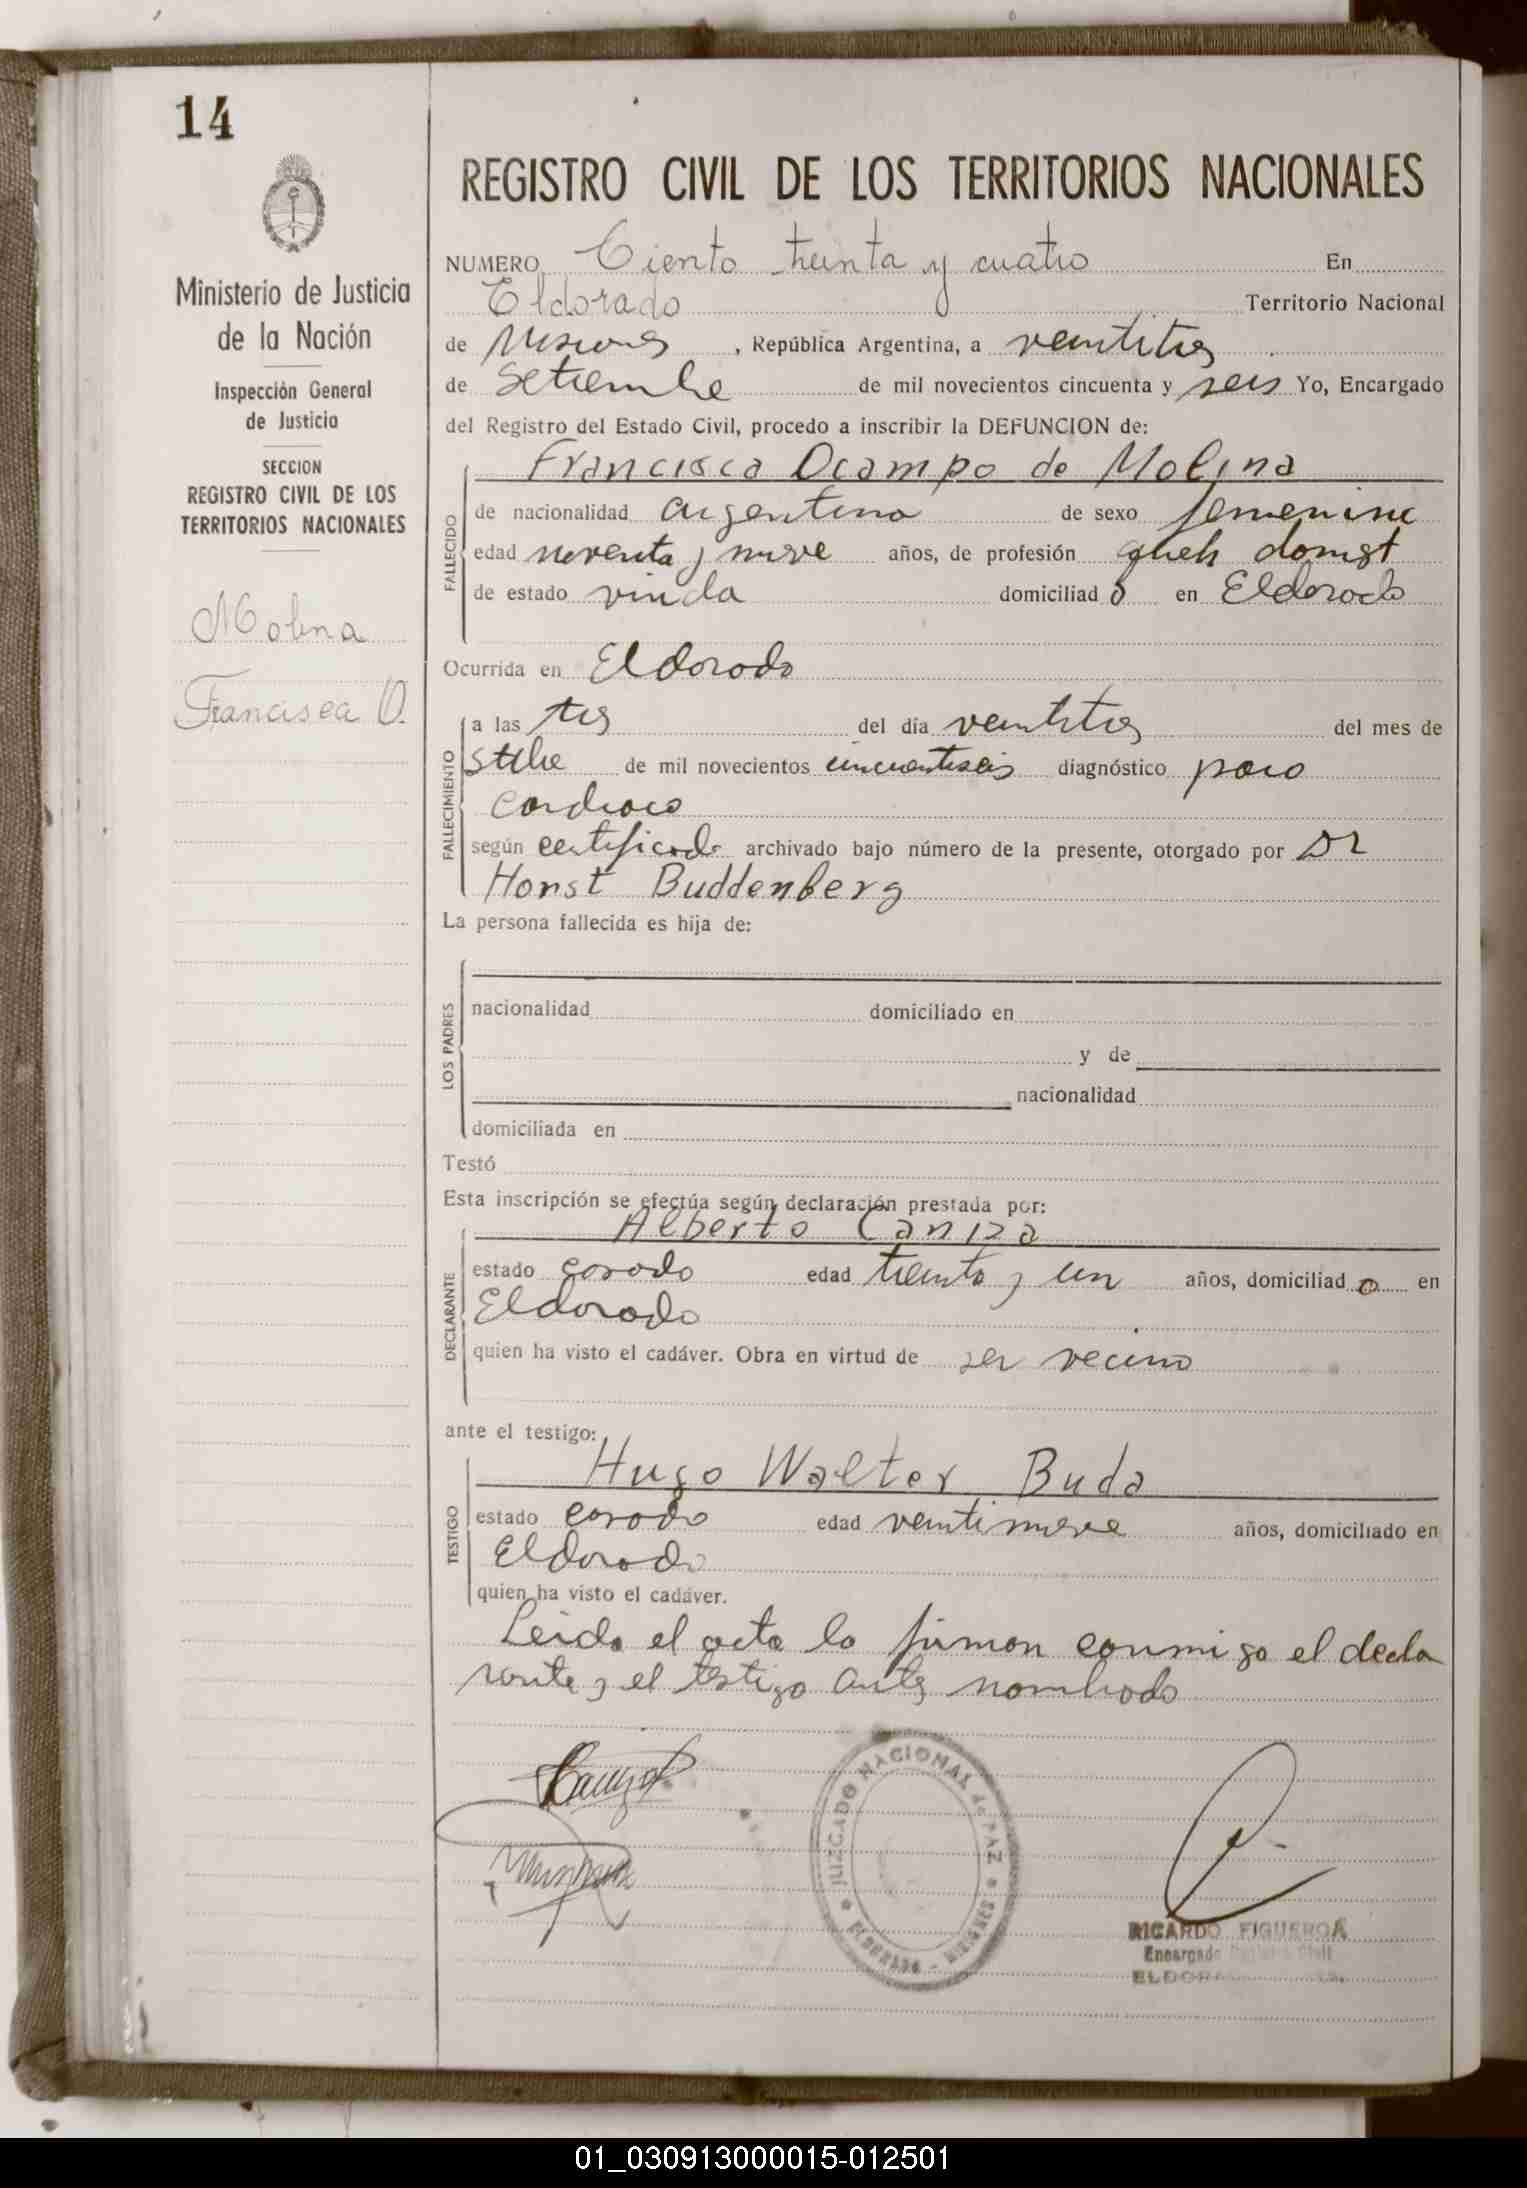 14
Ministerio de Justicia
de la Nación
Inspección General
de Justicia
SECCION
REGISTRO CIVIL DE LOS
TERRITORIOS NACIONALES
Molina
Francisca O.
REGISTRO CIVIL DE LOS TERRITORIOS NACIONALES
NUMERO Ciento treinta y cuatro En
Eldorado Territorio Nacional
de Misiones, República Argentina, a veintitres
de Setiembre de mil novecientos cincuenta y seis Yo, Encargado
del Registro del Estado Civil, procedo a inscribir la DEFUNCION de:
FALLECIDO
Francisca Ocampo de Molina
de nacionalidad argentina de sexo femenino
edad noventa y nueve años, de profesión queh domest
de estado viuda domiciliad o en Eldorado
Ocurrida en Eldorado
FALLECIMIENTO
a las tres del día veintitres del mes de
stbre de mil novecientos cincuentiseis diagnóstico paro
cardiaco
según certificado archivado bajo número de la presente, otorgado por Dr
Horst Buddenberg
La persona fallecida es hija de:
LOS PADRES
nacionalidad domiciliado en
y de
nacionalidad
domiciliada en
Testó
Esta inscripción se efectúa según declaración prestada por:
DECLARANTE
Alberto Caniza
estado casado edad treinta y un años, domiciliad o en
Eldorado
quien ha visto el cadáver. Obra en virtud de ser vecino
ante el testigo:
TESTIGO
Hugo Walter Buda
estado casado edad veintinueve años, domiciliado en
Eldorado
quien ha visto el cadáver.
Leida el acta la firman conmigo el decla
rante y el testigo antes nombrado
JUZGADO NACIONAL de PAZ
ELDORADO - MISIONES
RICARDO FIGUEROA
Encargado Registro Civil
01_030913000015-012501